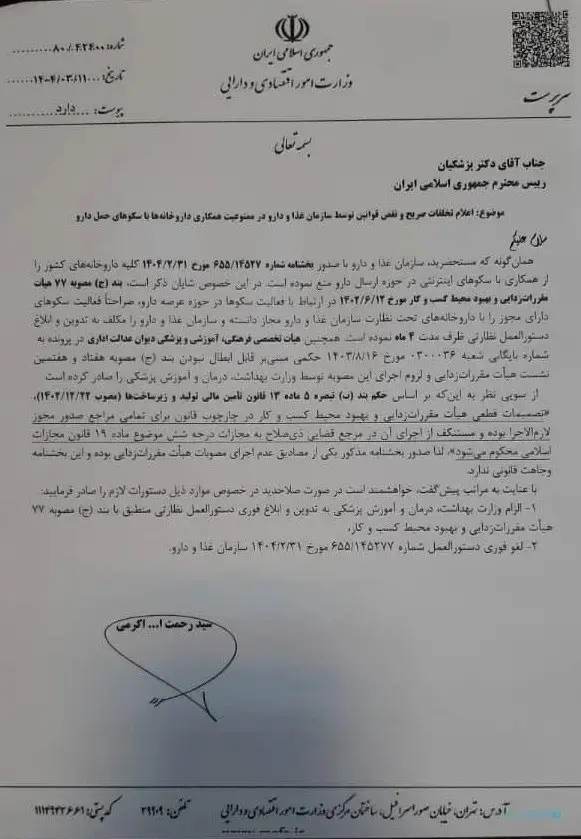 جمهوری اسلامی ایران
وزارت امور اقتصادی و دارایی
سرپرست
شماره: ۸۰/۰۴۲۴۰۰
تاریخ: ۱۴۰۴/۰۳/۱۱
پیوست: دارد
بسمه تعالی
جناب آقای دکتر پزشکیان
رییس محترم جمهوری اسلامی ایران
موضوع: اعلام تخلفات صریح و نقض قوانین توسط سازمان غذا و دارو در ممنوعیت همکاری داروخانه‌ها با سکوهای حمل دارو
سلام علیکم
همان‌گونه که مستحضرید، سازمان غذا و دارو با صدور بخشنامه شماره ۶۵۵/۱۴۵۲۷ مورخ ۱۴۰۴/۲/۳۱ کلیه داروخانه‌های کشور را
از همکاری با سکوهای اینترنتی در حوزه ارسال دارو منع نموده است. در این خصوص شایان ذکر است، بند (ج) مصوبه ۷۷ هیأت
مقررات‌زدایی و بهبود محیط کسب و کار مورخ ۱۴۰۲/۶/۱۲ در ارتباط با فعالیت سکوها در حوزه عرضه دارو، صراحتاً فعالیت سکوهای
دارای مجوز را با داروخانه‌های تحت نظارت سازمان غذا و دارو مجاز دانسته و سازمان غذا و دارو را مکلف به تدوین و ابلاغ
دستورالعمل نظارتی ظرف مدت ۴ ماه نموده است. همچنین هیأت تخصصی فرهنگی، آموزشی و پزشکی دیوان عدالت اداری در پرونده به
شماره بایگانی شعبه ۰۳۰۰۰۳۶ مورخ ۱۴۰۳/۸/۱۶ حکمی مبنی‌بر قابل ابطال نبودن بند (ج) مصوبه هفتاد و هفتمین
نشست هیأت مقررات‌زدایی و لزوم اجرای این مصوبه توسط وزارت بهداشت، درمان و آموزش پزشکی را صادر کرده است
از سویی نظر به این‌که بر اساس حکم بند (ب) تبصره ۵ ماده ۱۳ قانون تأمین مالی تولید و زیرساخت‌ها (مصوب ۱۴۰۲/۱۲/۲۲)،
«تصمیمات قطعی هیأت مقررات‌زدایی و بهبود محیط کسب و کار در چارچوب قانون برای تمامی مراجع صدور مجوز
لازم‌الاجرا بوده و مستنکف از اجرای آن در مرجع قضایی ذی‌صلاح به مجازات درجه شش موضوع ماده ۱۹ قانون مجازات
اسلامی محکوم می‌شود»، لذا صدور بخشنامه مذکور یکی از مصادیق عدم اجرای مصوبات هیأت مقررات‌زدایی بوده و این بخشنامه
وجاهت قانونی ندارد.
با عنایت به مراتب پیش‌گفت، خواهشمند است در صورت صلاحدید در خصوص موارد ذیل دستورات لازم را صادر فرمایید:
۱- الزام وزارت بهداشت، درمان و آموزش پزشکی به تدوین و ابلاغ فوری دستورالعمل نظارتی منطبق با بند (ج) مصوبه ۷۷
هیأت مقررات‌زدایی و بهبود محیط کسب و کار،
۲- لغو فوری دستورالعمل شماره ۶۵۵/۱۴۵۲۷۷ مورخ ۱۴۰۴/۲/۳۱ سازمان غذا و دارو.
سید رحمت ا... اکرمی
آدرس: تهران، خیابان صور اسرافیل، ساختمان مرکزی وزارت امور اقتصادی و دارایی تلفن: ۳۹۹۰۹ کدپستی: ۱۱۱۴۹۴۳۶۶۱